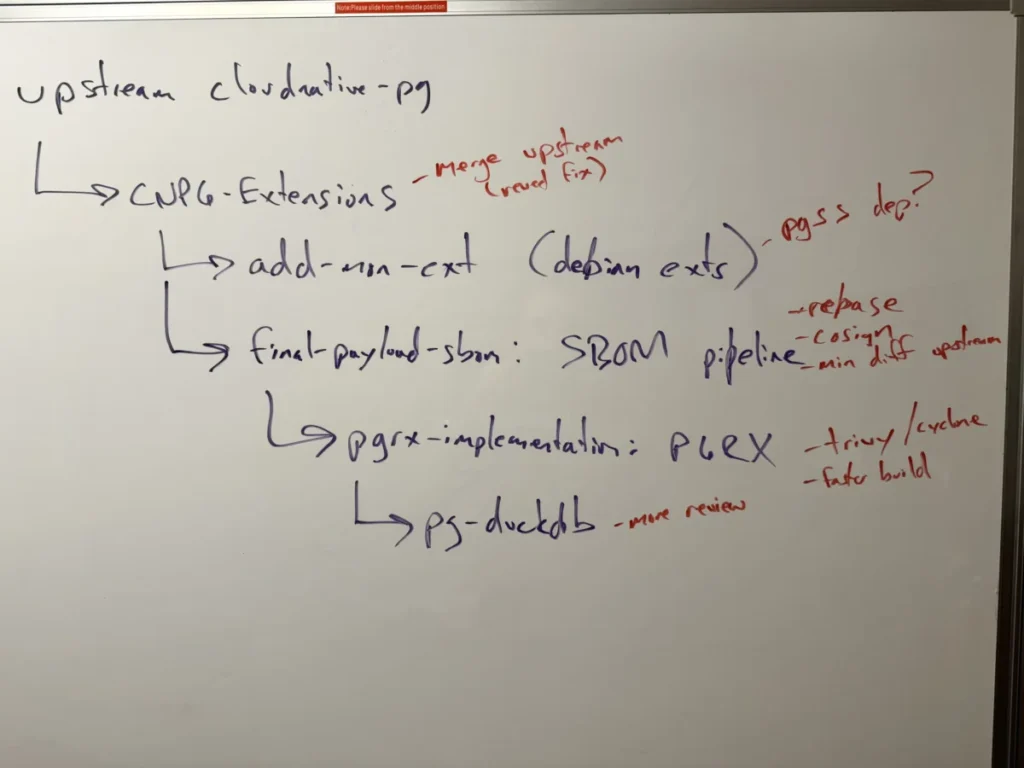 Note:Please slide from the middle position
upstream cloudnative-pg
CNPG-Extensions
- merge upstream
(reved fix)
add-mon-ext (debian exts)
- pgss dep?
final-payload-sbom: SBOM pipeline
- rebase
- cosign
- min diff upstream
pgrx-implementation: PGRX
- trivy/cyclone
- faster build
pg-duckdb
- more review